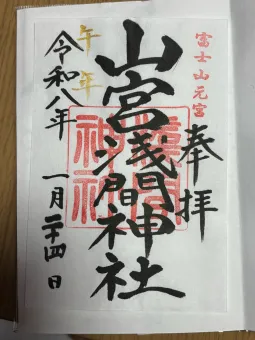 富士山元宮
奉拝
山宮浅間神社
浅間神社
午年
令和八年
一月二十四日